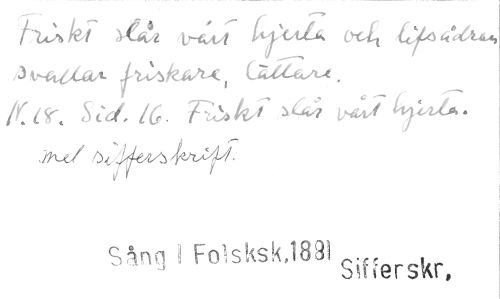 Friskt slår vårt hjerta och lifsådran
svallar friskare, lättare.
N. 18. Sid. 16. Friskt slår vårt hjerta.
mel sifferskrift.
Sång I Folsksk,1881 Sifferskr,